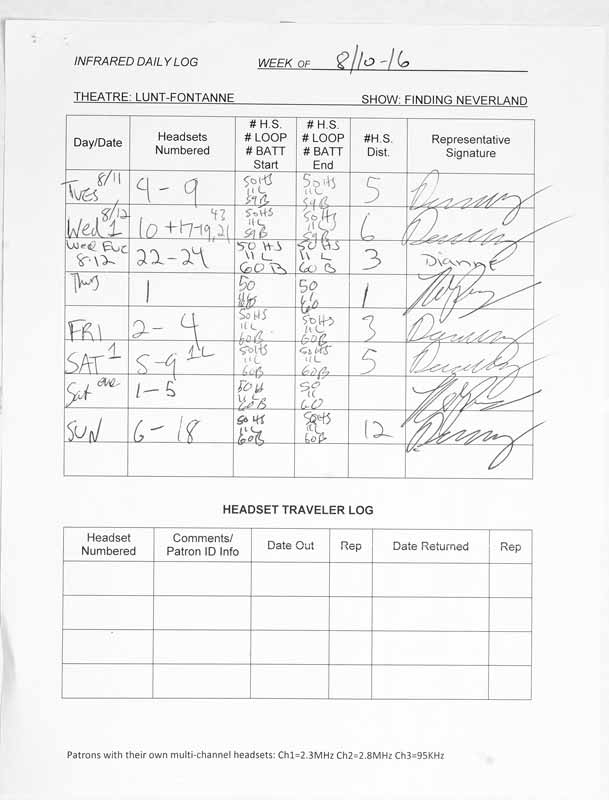 INFRARED DAILY LOG WEEK OF 8/10-16
THEATRE: LUNT-FONTANNE SHOW: FINDING NEVERLAND
Day/Date Headsets Numbered # H.S. # LOOP # BATT Start # H.S. # LOOP # BATT End #H.S. Dist. Representative Signature
TUES 8/11 4-9 50HS 11L 59B 50HS 11L 59B 5
Wed 1 8/12 10+17-19,21 43 50HS 11L 59B 50HS 11L 59B 6
Wed Eve 8.12 22-24 50 HS 11 L 60 B 50 HS 11 L 60 B 3 Dianne
Thurs 1 50 50 60 1
FRI 2-4 50HS 11L 60B 50HS 11L 60B 3
SAT 1 5-9 1L 50HS 11L 60B 50HS 11L 60B 5
Sat eve 1-5 50H 11L 60B 50 11 60
SUN 6-18 50HS 11L 60B 50HS 11L 60B 12
HEADSET TRAVELER LOG
Headset Numbered Comments/ Patron ID Info Date Out Rep Date Returned Rep
Patrons with their own multi-channel headsets: Ch1=2.3MHz Ch2=2.8MHz Ch3=95KHz